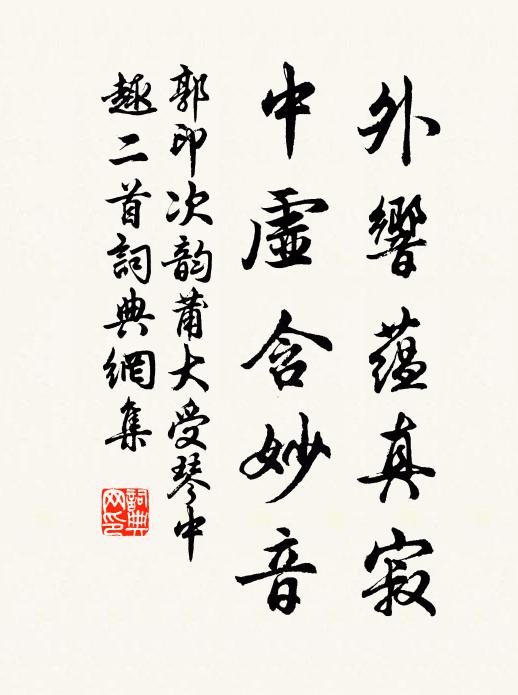 外響蘊真寂
中虛含妙音
郭印次韵莆大受琴中
趣二首詞典網集
詞典網印